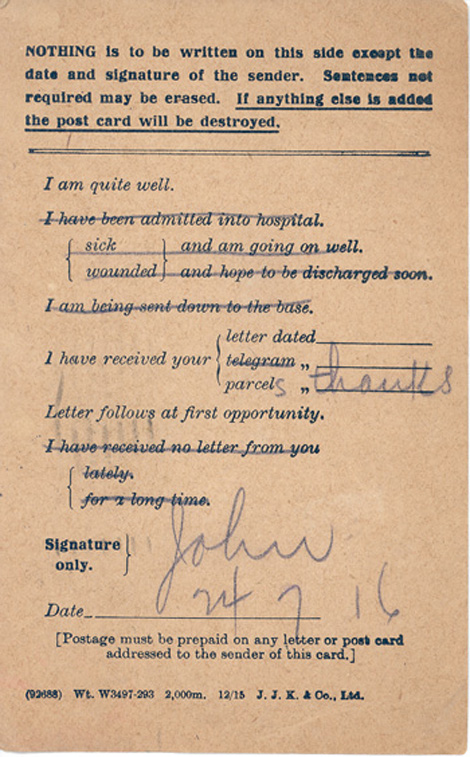 NOTHING is to be written on this side except the
date and signature of the sender. Sentences not
required may be erased. If anything else is added
the post card will be destroyed.
I am quite well.
I have been admitted into hospital.
sick and am going on well.
wounded and hope to be discharged soon.
I am being sent down to the base.
letter dated
I have received your telegram „
parcels „ thanks
Letter follows at first opportunity.
I have received no letter from you
lately.
for a long time.
Signature
only. John
Date 24 7 16
[Postage must be prepaid on any letter or post card
addressed to the sender of this card.]
(92688) Wt. W3497-293 2,000m. 12/15 J. J. K. & Co., Ltd.